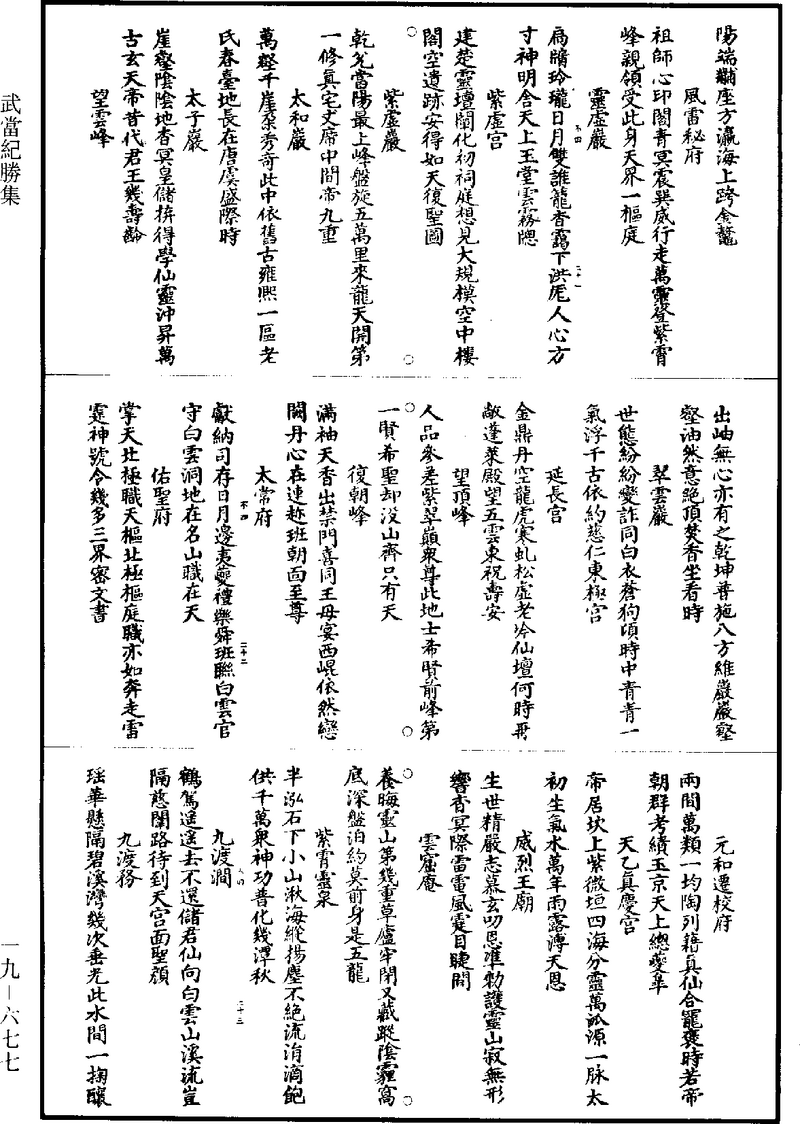 陽端黼座方瀛海上跨金鼇
風雷秘府
祖師心印閟青冥震巽威行走萬靈登紫霄
峰親領受此身天界一樞庭
靈虛巖
扃牖玲瓏日月雙誰籠香靄下洪厖人心方
寸神明舍天上玉堂雲霧牕
紫虛宮
建楚靈壇闡化初祠庭想見大規模空中樓
閣空遺跡安得如天復聖圖
紫虛巖
乾兊當陽最上峰盤旋五萬里來龍天開第
一修真宅丈席中間帝九重
太和巖
萬壑千崖朶秀奇此中依舊古雍熈一區老
氏春臺地長在唐虞盛際時
太子巖
崖壑陰陰地杳冥皇儲揜得學仙靈沖昇萬
古玄天帝昔代君王幾壽齡
望雲峰
出岫無心亦有之乾坤普施八方維巖巖壑
壑油然意絕頂焚香坐看時
翠雲巖
世態紛紛變詐同白衣蒼狗頃時中青青一
氣浮千古依約慈仁東極宮
延長宮
金鼎丹空龍虎寒虬松虛老冷仙壇何時再
啟蓬萊殿望五雲東祝壽安
望頂峰
人品參差紫翠巔衆尊此地士希賢前峰第
一賢希聖却沒山齊只有天
復朝峰
滿袖天香出禁門喜同王母宴西崐依然戀
闕丹心在連趂班朝面至尊
太常府
獻納司存日月邊夷夔禮樂舜班聯白雲官
守白雲洞地在名山職在天
佑聖府
掌天北極職天樞北極樞庭職亦如奔走雷
霆神號令幾多三界密文書
元和遷校府
兩間萬類一均陶列籍真仙合寵褒時若帝
朝群考績玉京天上總夔臯
天乙真慶宮
帝居坎上紫微垣四海分靈萬派源一脉太
初生氣水萬年雨露溥天恩
威烈王廟
生世精嚴志慕玄叨恩準勑護靈山寂無形
響香冥際雷電風霆目睫間
雲窟庵
養晦靈山第幾重草廬牢閉又藏蹤陰霾窩
底深盤泊約莫前身是五龍
紫霄靈泉
半泓石下小山湫海縱揚塵不絕流涓滴飽
供千萬衆神功普化幾潭秋
九渡澗
鶴駕遥遥去不還儲君仙向白雲山溪流豈
隔慈闈路待到天宮面聖顏
九渡務
瑶華懸隔碧溪灣幾次垂光此水間一掬釀
武當紀勝集
一九—六七七
不四
二十一
不四
二十二
二十三